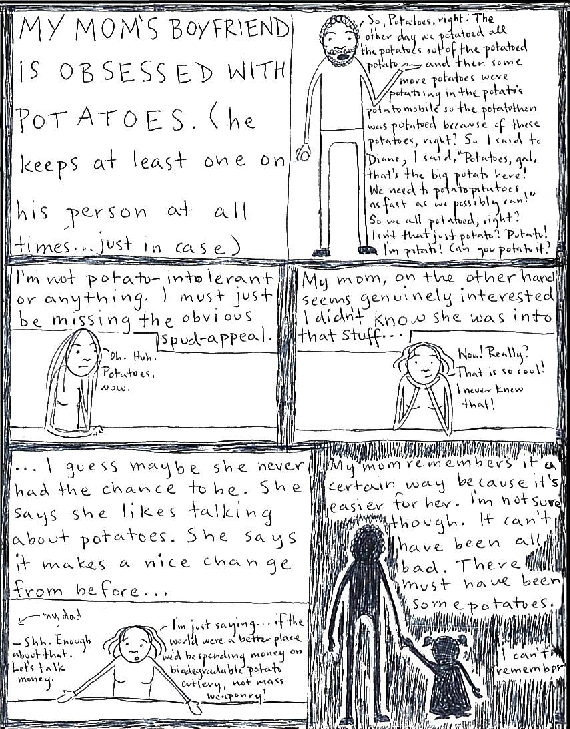 MY MOM'S BOYFRIEND
IS OBSESSED WITH
POTATOES. (he
keeps at least one on
his person at all
times...just in case)
So, Potatoes, right. The
other day we potatoed all
the potatoes out of the potatoed
potato and then some
more potatoes were
potatoing in the potato's
potatomobile so the potatothon
was potatoed because of these
potatoes, right? So I said to
Diane, I said, "Potatoes, gal,
that's the big potato here!
We need to potato potatoes
as fast as we possibly can!"
So we all potatoed, right?
Isn't that just potato? Potato!
I'm potato! Can you potato it?
I'm not potato-intolerant
or anything. I must just
be missing the obvious
spud-appeal.
Oh. Huh.
Potatoes.
wow.
My mom, on the other hand
seems genuinely interested
I didn't know she was into
that stuff...
Wow! Really?
That is so cool!
I never knew
that!
... I guess maybe she never
had the chance to be. She
says she likes talking
about potatoes. She says
it makes a nice change
from before...
my dad
Shh. Enough
about that.
Let's talk
money.
I'm just saying... if the
world were a better place
we'd be spending money on
biodegradable potato
cutlery, not mass
weaponry!
My mom remembers it a
certain way because it's
easier for her. I'm not sure
though. It can't
have been all
bad. There
must have been
some potatoes.
i can't
remember